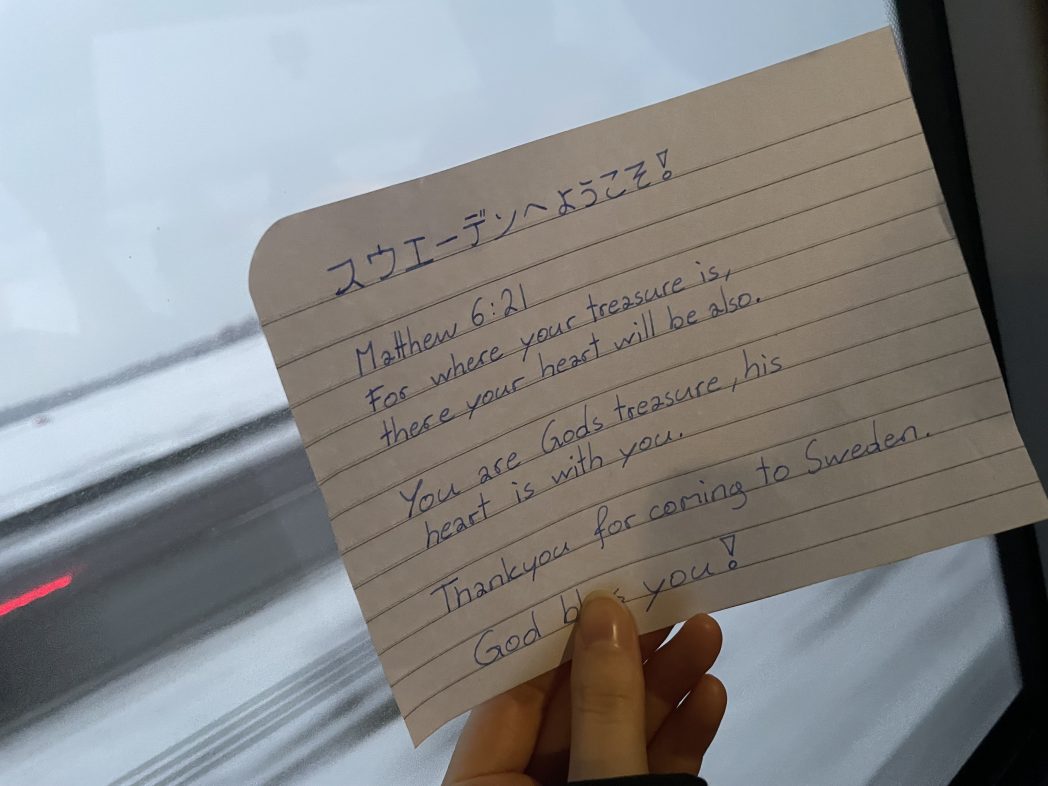 スウエーデンへようこそ!
Matthew 6:21
For where your treasure is,
there your heart will be also.
You are Gods treasure, his
heart is with you.
Thankyou for coming to Sweden.
God you!